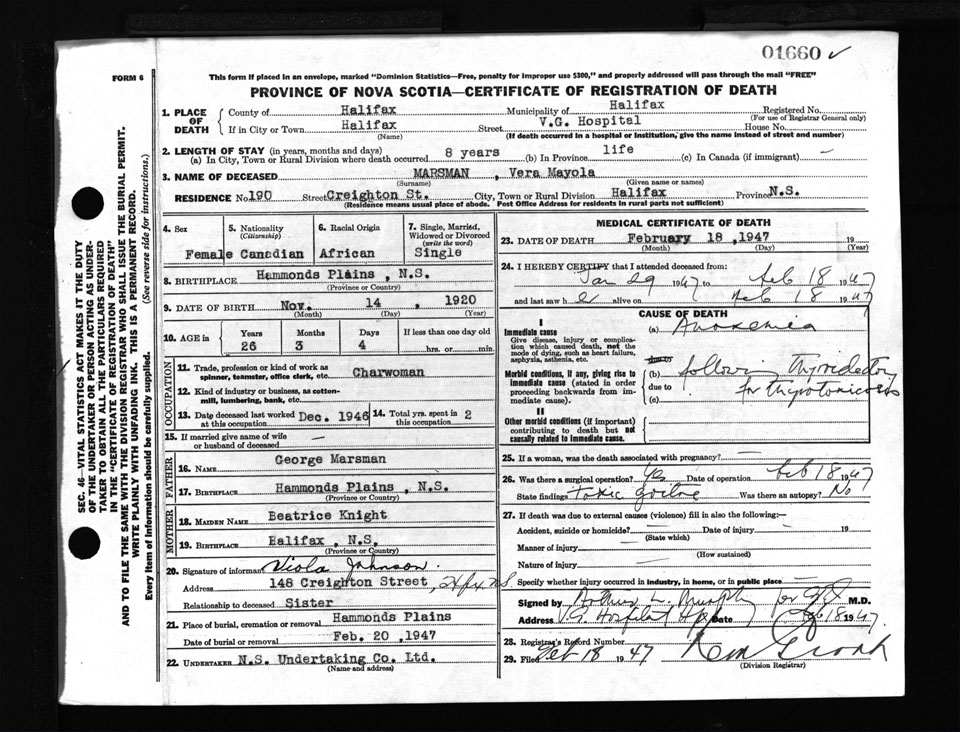 01660 ✓
FORM 6
This form if placed in an envelope, marked "Dominion Statistics—Free, penalty for improper use $300," and properly addressed will pass through the mail "FREE"
PROVINCE OF NOVA SCOTIA—CERTIFICATE OF REGISTRATION OF DEATH
SEC. 46—VITAL STATISTICS ACT MAKES IT THE DUTY
OF THE UNDERTAKER OR PERSON ACTING AS UNDER-
TAKER TO OBTAIN ALL THE PARTICULARS REQUIRED
IN THE "CERTIFICATE OF REGISTRATION OF DEATH"
AND TO FILE THE SAME WITH THE DIVISION REGISTRAR WHO SHALL ISSUE THE BURIAL PERMIT.
WRITE PLAINLY WITH UNFADING INK. THIS IS A PERMANENT RECORD.
Every Item of Information should be carefully supplied. (See reverse side for instructions.)
1. PLACE OF DEATH County of Halifax Municipality of Halifax Registered No.
(For use of Registrar General only)
If in City or Town Halifax Street V.G. Hospital House No.
(Name) (If death occurred in a hospital or institution, give the name instead of street and number)
2. LENGTH OF STAY (in years, months and days)
(a) In City, Town or Rural Division where death occurred 8 years (b) In Province life (c) In Canada (if immigrant) —
3. NAME OF DECEASED MARSMAN , Vera Mayola
(Surname) (Given name or names)
RESIDENCE No. 190 Street Creighton St. City, Town or Rural Division Halifax Province N.S.
(Residence means usual place of abode. Post Office Address for residents in rural parts not sufficient)
4. Sex 5. Nationality (Citizenship) 6. Racial Origin 7. Single, Married, Widowed or Divorced (write the word)
Female Canadian African Single
8. BIRTHPLACE Hammonds Plains , N.S.
(Province or Country)
9. DATE OF BIRTH Nov. 14 1920
(Month) (Day) (Year)
10. AGE in Years Months Days If less than one day old
26 3 4 hrs. or min.
OCCUPATION
11. Trade, profession or kind of work as spinner, teamster, office clerk, etc. Charwoman
12. Kind of industry or business, as cotton-mill, lumbering, bank, etc.
13. Date deceased last worked at this occupation Dec. 1946 14. Total yrs. spent in this occupation 2
15. If married give name of wife or husband of deceased —
FATHER
16. NAME George Marsman
17. BIRTHPLACE Hammonds Plains , N.S.
(Province or Country)
MOTHER
18. MAIDEN NAME Beatrice Knight
19. BIRTHPLACE Halifax , N.S.
(Province or Country)
20. Signature of informant Viola Johnson.
Address 148 Creighton Street, Hfx. N.S.
Relationship to deceased Sister
21. Place of burial, cremation or removal Hammonds Plains
Date of burial or removal Feb. 20 ,1947
22. UNDERTAKER N.S. Undertaking Co. Ltd.
(Name and address)
MEDICAL CERTIFICATE OF DEATH
23. DATE OF DEATH February 18 ,1947 19
(Month) (Day) (Year)
24. I HEREBY CERTIFY that I attended deceased from:
Jan 29 1947 to Feb 18 1947
and last saw her alive on Feb 18 1947
CAUSE OF DEATH
I
Immediate cause
Give disease, injury or complication which caused death, not the mode of dying, such as heart failure, asphyxia, asthenia, etc.
(a) Anoxemia
due to
Morbid conditions, if any, giving rise to immediate cause (stated in order proceeding backwards from immediate cause).
(b) following
due to for thyrotoxicosis
(c)
II
Other morbid conditions (if important) contributing to death but not causally related to immediate cause.
25. If a woman, was the death associated with pregnancy? —
26. Was there a surgical operation? Yes Date of operation Feb 18 1947
State findings toxic goitre Was there an autopsy? No
27. If death was due to external causes (violence) fill in also the following:—
Accident, suicide or homicide? — Date of injury — 19
(State which)
Manner of injury —
(How sustained)
Nature of injury —
Specify whether injury occurred in industry, in home, or in public place —
Signed by Arthur L. Murphy M.D.
Address V.G. Hospital Hfx Date Feb 18 1947
28. Registrar's Record Number
29. Filed Feb 18 1947
(Division Registrar)